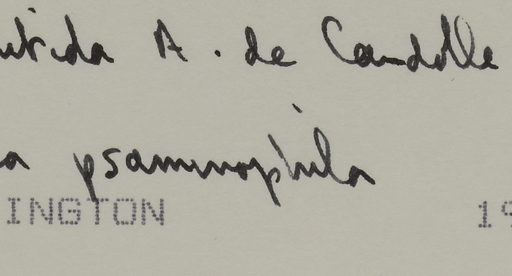 utida A. de Candolle
a psammophila
INGTON 19